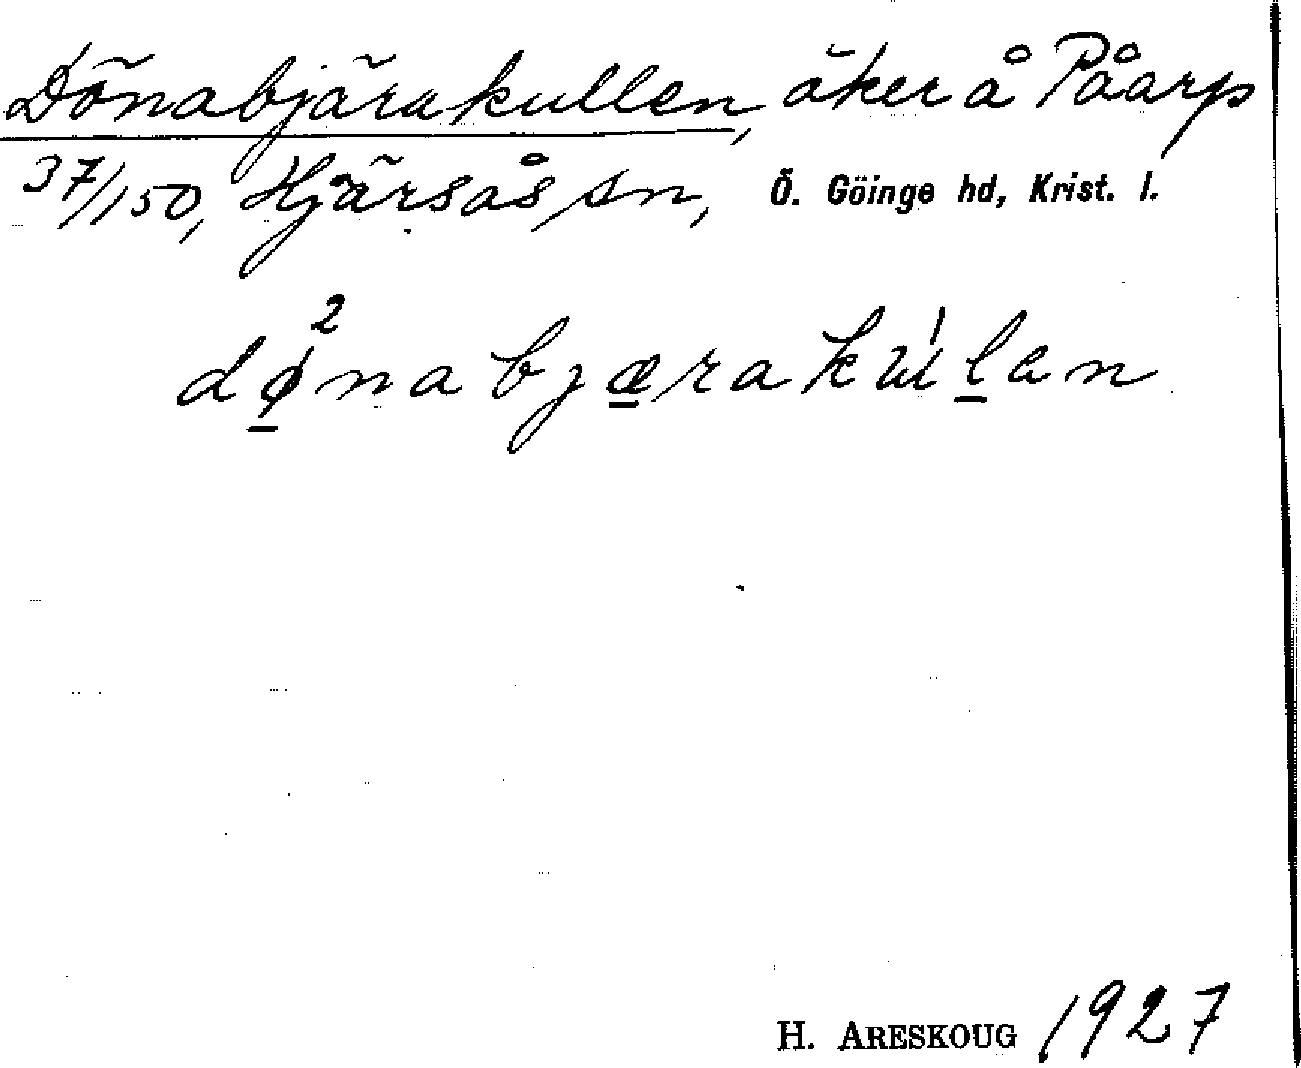 Dönabjärakullen, åker å Påarp
37/150, Hjärsås sn, Ö. Göinge hd, Krist. l.
dø̱²nabjæ̱rakúḻan
H. ARESKOUG 1927